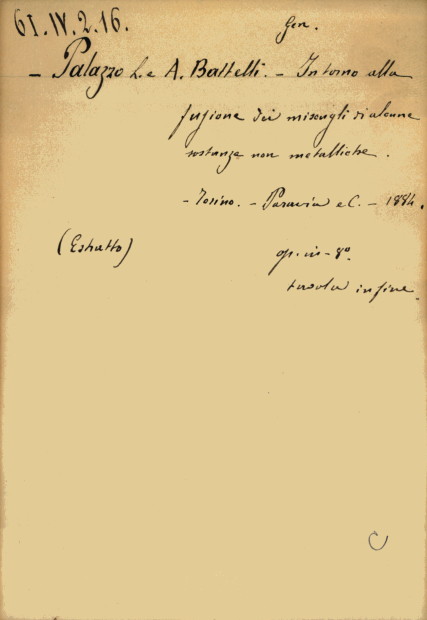 61.IV.2.16.
Gen.
- Palazzo L. e A. Battelli. - Intorno alla
fusione dei miscugli di alcune
sostanze non metalliche.
- Torino. - Paravia e C. - 1884.
(Estratto)
op. in-8º
tavola in fine.
C